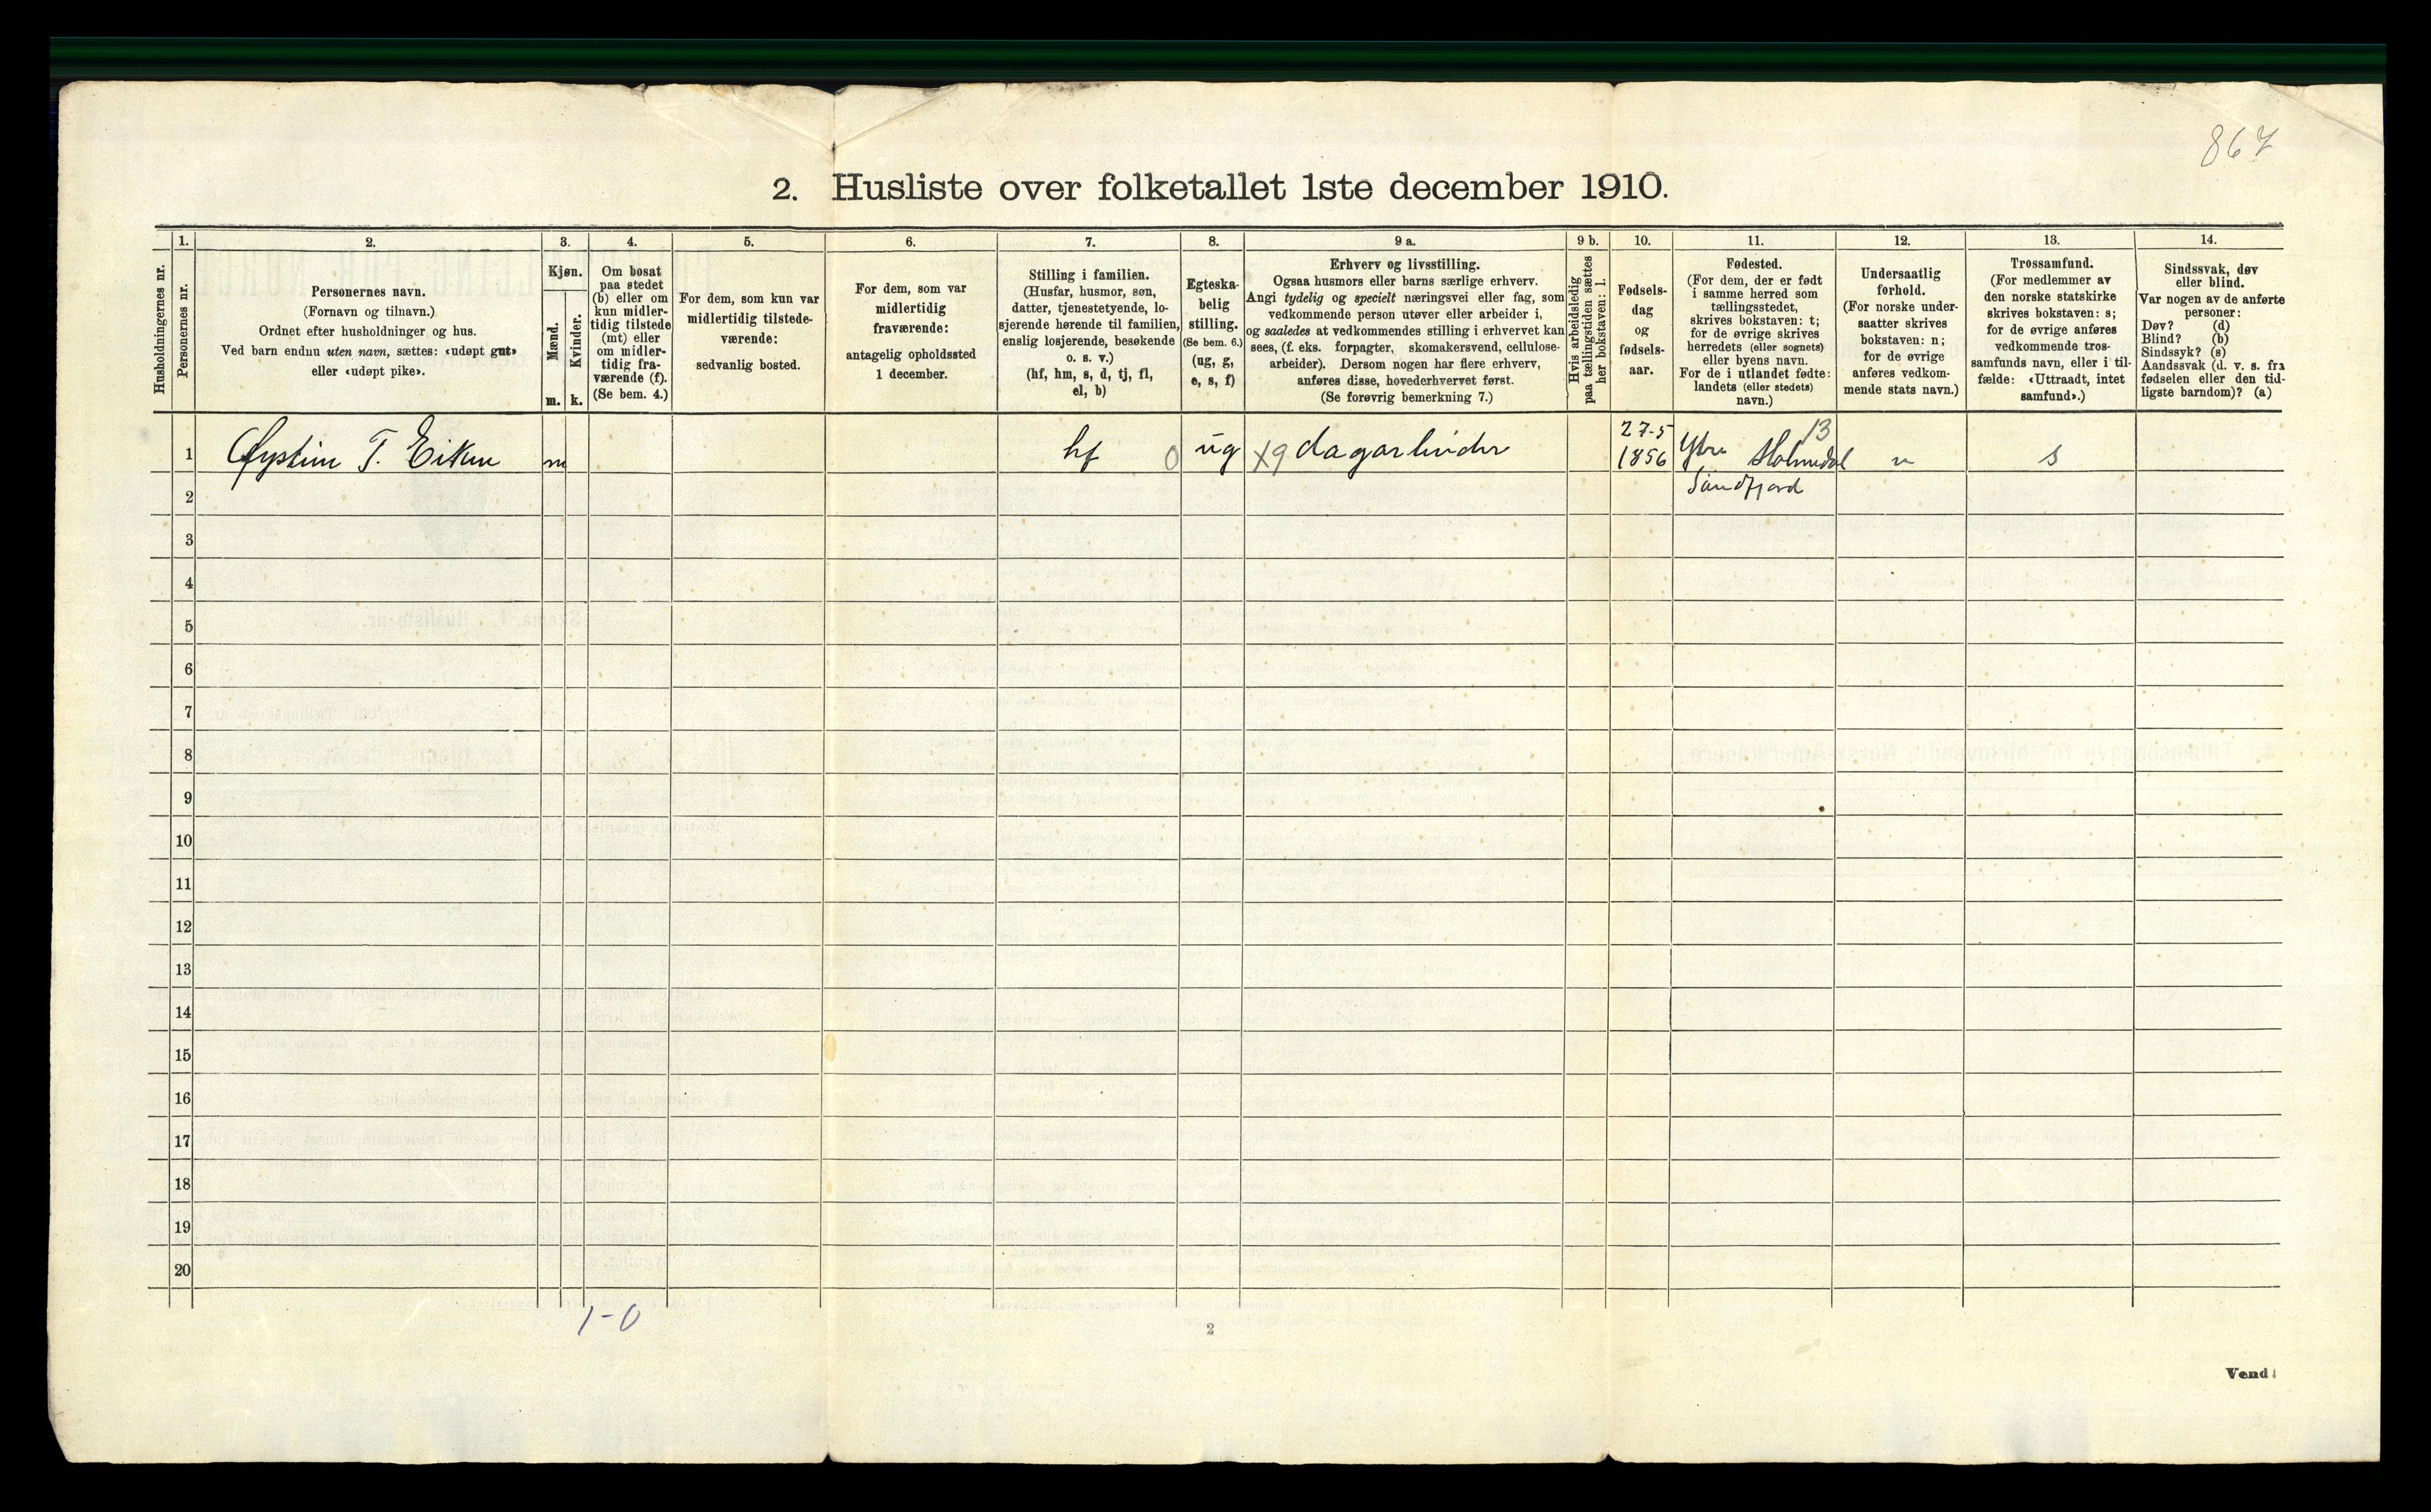 867
2. Husliste over folketallet 1ste december 1910.
Husholdningernes nr.
1.
Personernes nr.
2.
Personernes navn.
(Fornavn og tilnavn.)
Ordnet efter husholdninger og hus.
Ved barn endnu uten navn, sættes: «udøpt gut»
eller «udøpt pike».
3.
Kjøn.
Mænd.
Kvinder.
m. k.
4.
Om bosat
paa stedet
(b) eller om
kun midler-
tidig tilstede
(mt) eller
om midler-
tidig fra-
værende (f).
(Se bem. 4.)
5.
For dem, som kun var
midlertidig tilstede-
værende:
sedvanlig bosted.
6.
For dem, som var
midlertidig
fraværende:
antagelig opholdssted
1 december.
7.
Stilling i familien.
(Husfar, husmor, søn,
datter, tjenestetyende, lo-
sjerende hørende til familien,
enslig losjerende, besøkende
o. s. v.)
(hf, hm, s, d, tj, fl,
el, b)
8.
Egteska-
belig
stilling.
(Se bem. 6.)
(ug, g,
e, s, f)
9 a.
Erhverv og livsstilling.
Ogsaa husmors eller barns særlige erhverv.
Angi tydelig og specielt næringsvei eller fag, som
vedkommende person utøver eller arbeider i,
og saaledes at vedkommendes stilling i erhvervet kan
sees, (f. eks. forpagter, skomakersvend, cellulose-
arbeider). Dersom nogen har flere erhverv,
anføres disse, hovederhvervet først.
(Se forøvrig bemerkning 7.)
9 b.
Hvis arbeidsledig
paa tællingstiden sættes
her bokstaven: l.
10.
Fødsels-
dag
og
fødsels-
aar.
11.
Fødested.
(For dem, der er født
i samme herred som
tællingsstedet,
skrives bokstaven: t;
for de øvrige skrives
herredets (eller sognets)
eller byens navn.
For de i utlandet fødte:
landets (eller stedets)
navn.)
12.
Undersaatlig
forhold.
(For norske under-
saatter skrives
bokstaven: n;
for de øvrige
anføres vedkom-
mende stats navn.)
13.
Trossamfund.
(For medlemmer av
den norske statskirke
skrives bokstaven: s;
for de øvrige anføres
vedkommende tros-
samfunds navn, eller i til-
fælde: «Uttraadt, intet
samfund».)
14.
Sindssvak, døv
eller blind.
Var nogen av de anførte
personer:
Døv? (d)
Blind? (b)
Sindssyk? (s)
Aandssvak (d. v. s. fra
fødselen eller den tid-
ligste barndom)? (a)
1 Øystein T. Eiken m hf 0 ug X9 dagarbeider 27-5 1856 Ytre Holmedal 13 n s
2 Søndfjord
3
4
5
6
7
8
9
10
11
12
13
14
15
16
17
18
19
20
1-0
2
Vend!